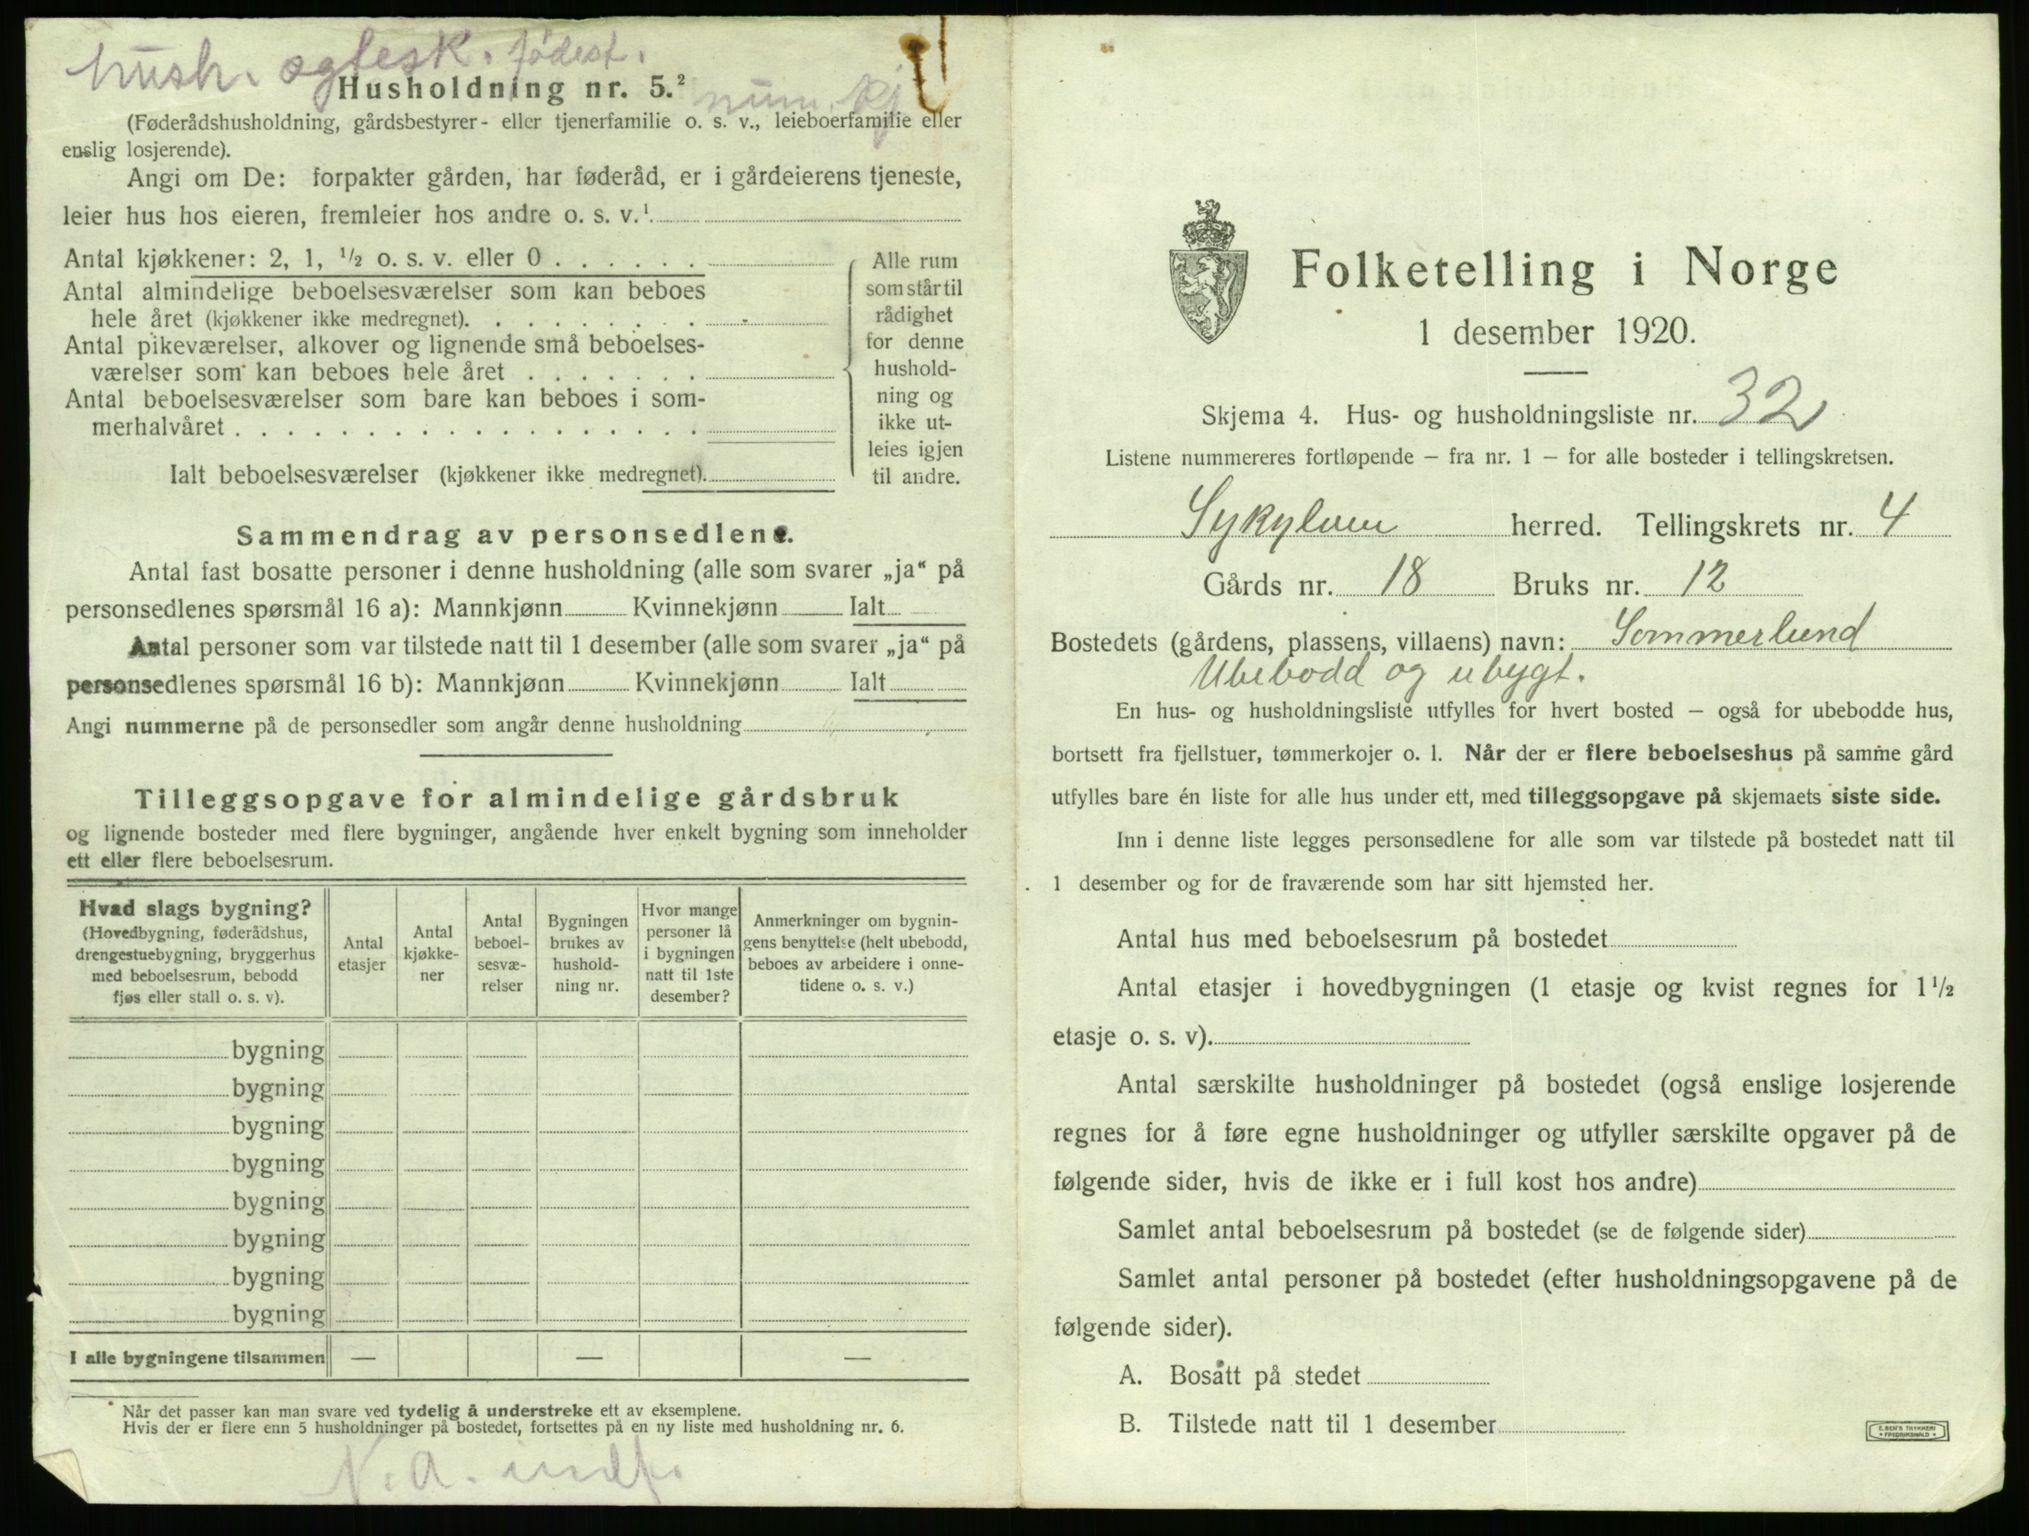 hush. ogtesk. fødest.
Husholdning nr. 5.²
num. kj
(Føderådshusholdning, gårdsbestyrer- eller tjenerfamilie o. s. v., leieboerfamilie eller
enslig losjerende).
Angi om De: forpakter gården, har føderåd, er i gårdeierens tjeneste,
leier hus hos eieren, fremleier hos andre o. s. v.¹
Antal kjøkkener: 2, 1, ½ o. s. v. eller 0 . . . . . .
Antal almindelige beboelsesværelser som kan beboes
hele året (kjøkkener ikke medregnet). . . . . . . . .
Antal pikeværelser, alkover og lignende små beboelses-
værelser som kan beboes hele året . . . . . . .
Antal beboelsesværelser som bare kan beboes i som-
merhalvåret . . . . . . . . . . . . . . . . . .
Ialt beboelsesværelser (kjøkkener ikke medregnet).
Alle rum
som står til
rådighet
for denne
hushold-
ning og
ikke ut-
leies igjen
til andre.
Sammendrag av personsedlene.
Antal fast bosatte personer i denne husholdning (alle som svarer „ja“ på
personsedlenes spørsmål 16 a): Mannkjønn Kvinnekjønn Ialt
Antal personer som var tilstede natt til 1 desember (alle som svarer „ja“ på
personsedlenes spørsmål 16 b): Mannkjønn Kvinnekjønn Ialt
Angi nummerne på de personsedler som angår denne husholdning
Tilleggsopgave for almindelige gårdsbruk
og lignende bosteder med flere bygninger, angående hver enkelt bygning som inneholder
ett eller flere beboelsesrum.
Hvad slags bygning?
(Hovedbygning, føderådshus,
drengestuebygning, bryggerhus
med beboelsesrum, bebodd
fjøs eller stall o. s. v).
Antal
etasjer
Antal
kjøkke-
ner
Antal
beboel-
sesvæ-
relser
Bygningen
brukes av
hushold-
ning nr.
Hvor mange
personer lå
i bygningen
natt til 1ste
desember?
Anmerkninger om bygnin-
gens benyttelse (helt ubebodd,
beboes av arbeidere i onne-
tidene o. s. v.)
bygning
bygning
bygning
bygning
bygning
bygning
bygning
bygning
I alle bygningene tilsammen — — —
Når det passer kan man svare ved tydelig å understreke ett av eksemplene.
Hvis der er flere enn 5 husholdninger på bostedet, fortsettes på en ny liste med husholdning nr. 6.
N. A. indf.
Folketelling i Norge
1 desember 1920.
Skjema 4. Hus- og husholdningsliste nr. 32
Listene nummereres fortløpende – fra nr. 1 – for alle bosteder i tellingskretsen.
Sykylven herred. Tellingskrets nr. 4
Gårds nr. 18 Bruks nr. 12
Bostedets (gårdens, plassens, villaens) navn: Sommerlund
Ubebodd og ubygt.
En hus- og husholdningsliste utfylles for hvert bosted – også for ubebodde hus,
bortsett fra fjellstuer, tømmerkojer o. l. Når der er flere beboelseshus på samme gård
utfylles bare én liste for alle hus under ett, med tilleggsopgave på skjemaets siste side.
Inn i denne liste legges personsedlene for alle som var tilstede på bostedet natt til
1 desember og for de fraværende som har sitt hjemsted her.
Antal hus med beboelsesrum på bostedet
Antal etasjer i hovedbygningen (1 etasje og kvist regnes for 1½
etasje o. s. v).
Antal særskilte husholdninger på bostedet (også enslige losjerende
regnes for å føre egne husholdninger og utfyller særskilte opgaver på de
følgende sider, hvis de ikke er i full kost hos andre)
Samlet antal beboelsesrum på bostedet (se de følgende sider)
Samlet antal personer på bostedet (efter husholdningsopgavene på de
følgende sider).
A. Bosatt på stedet
B. Tilstede natt til 1 desember